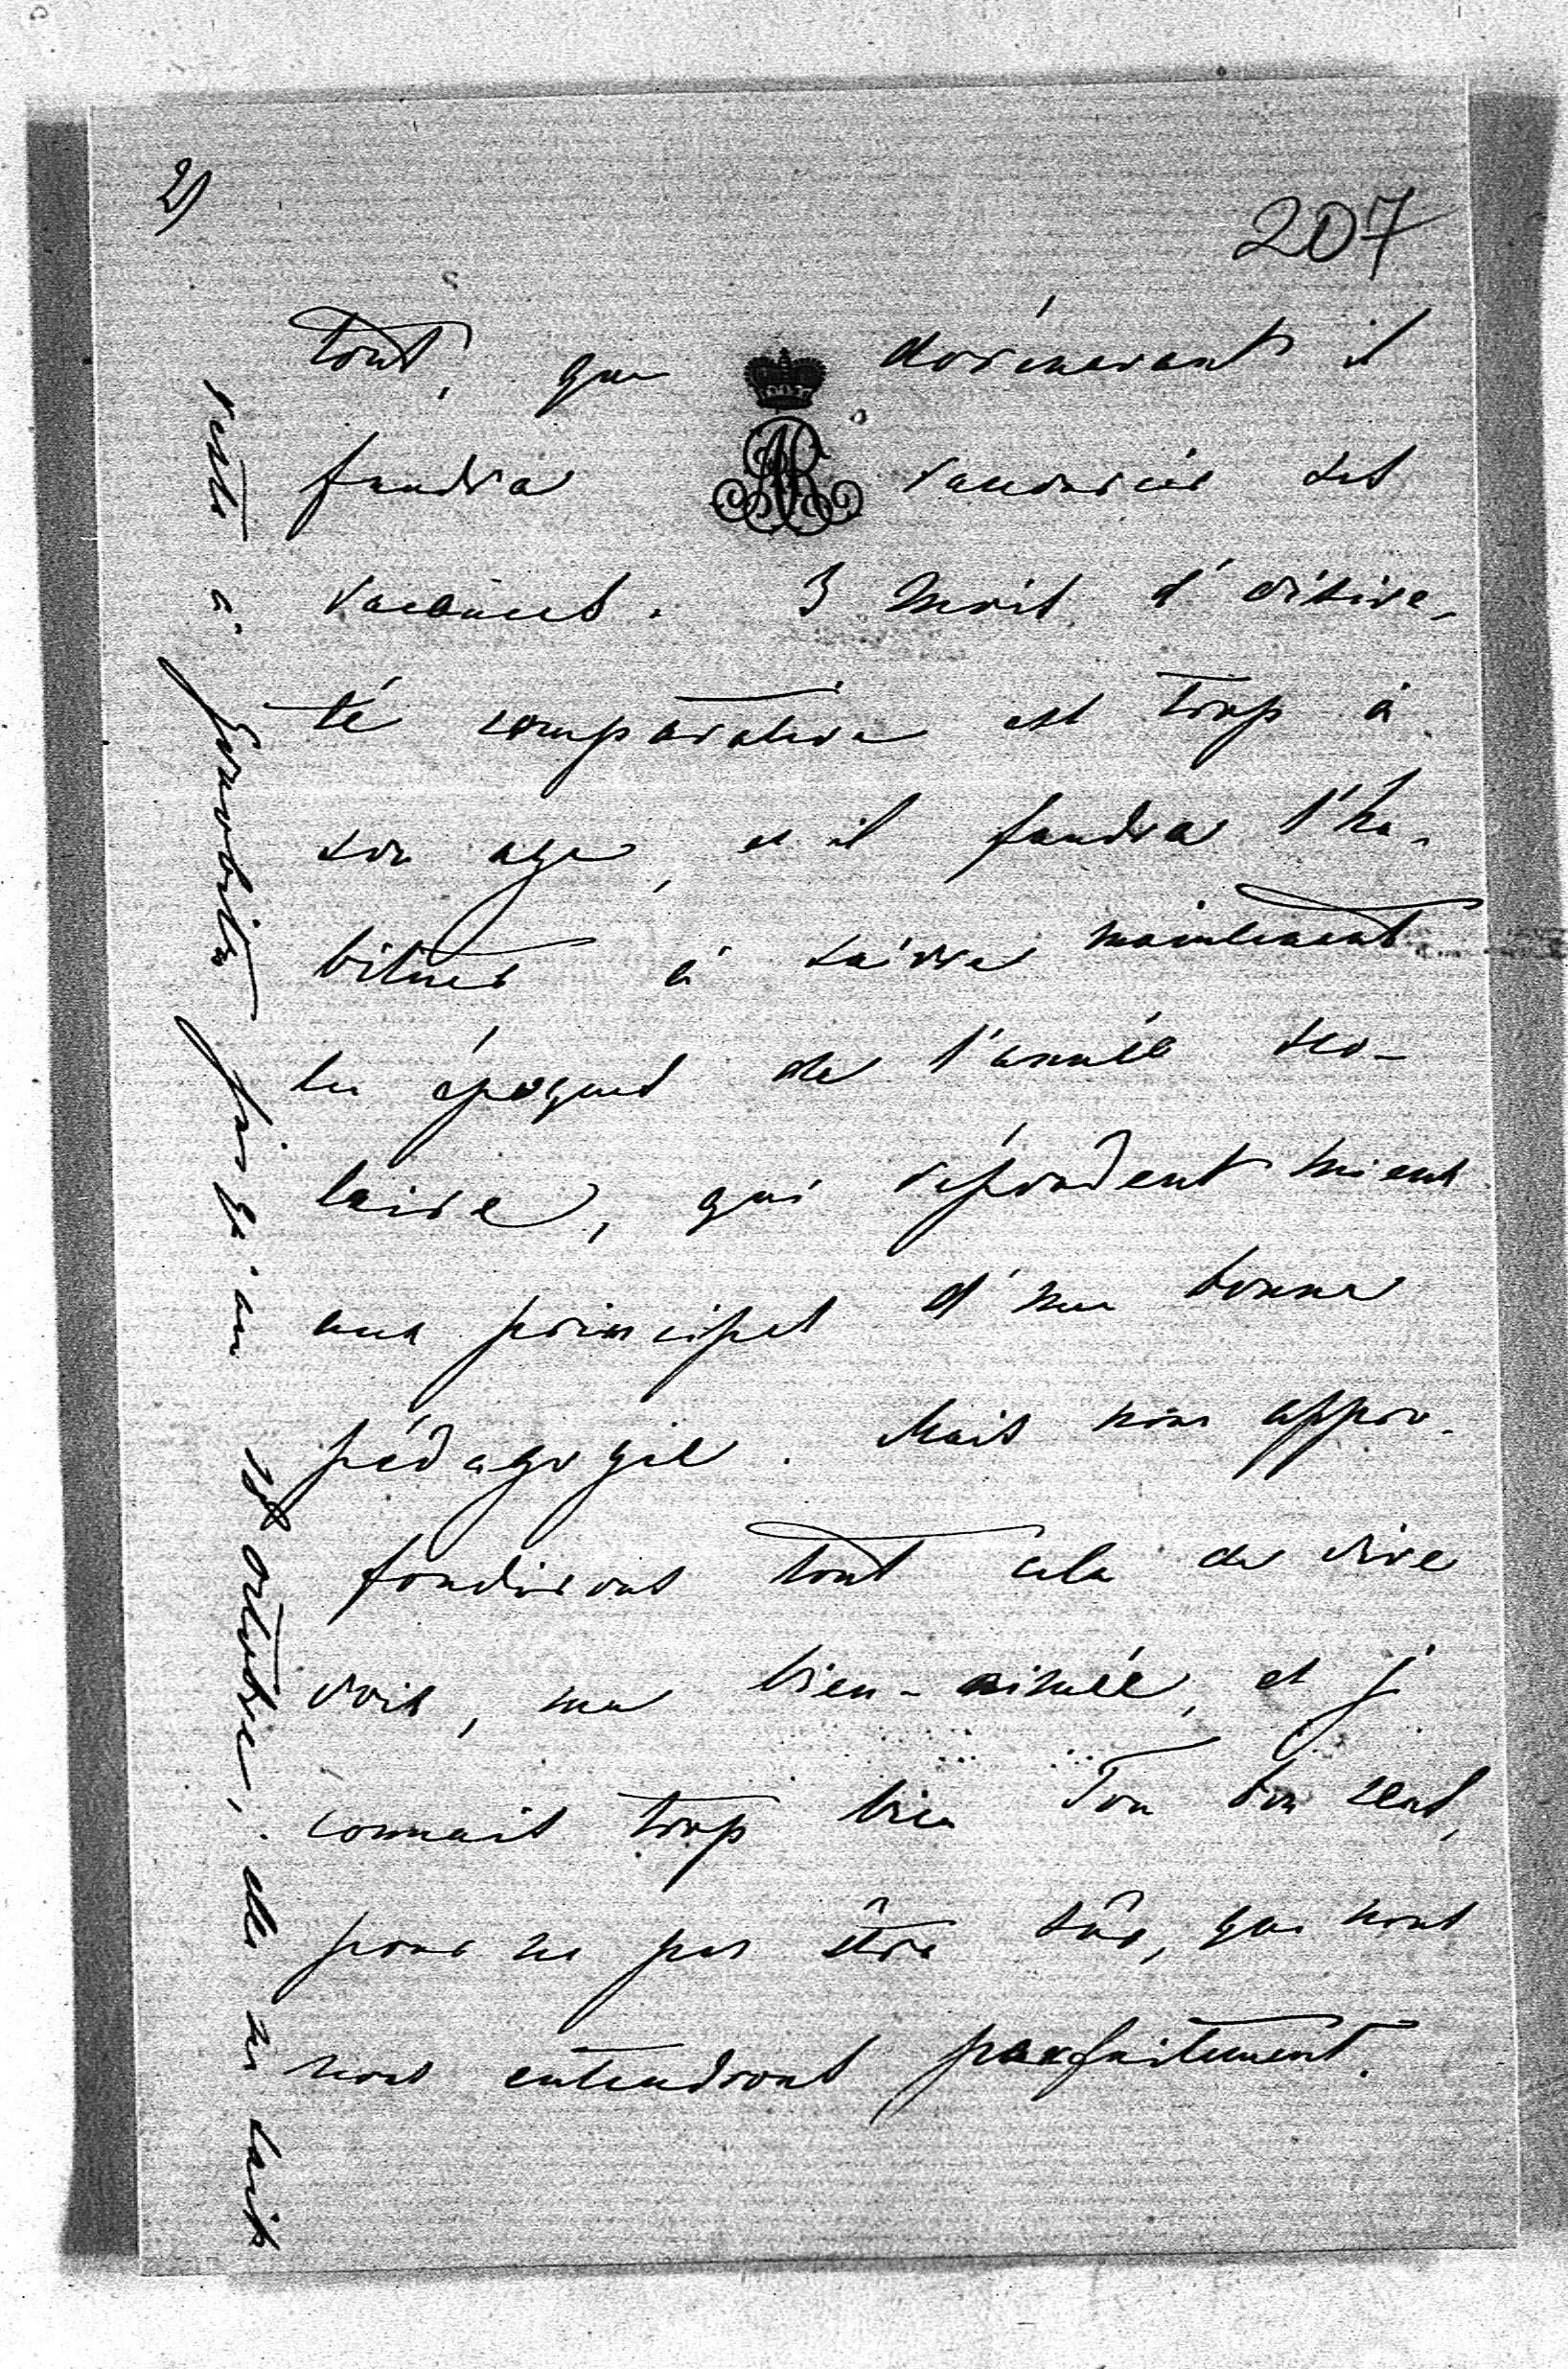 2)
207
tout, que dorénavant il
faudra raccourcir ses
vacances. 3 mois d'oisive-
té comparative est trop à
son age, et il faudra l'ha-
bituer à suivre maintenant
les époques de l'année sco-
laire, qui répondent mieux
aux principes d'une bonne
pédagogie. Mais nous appro-
fondirons tout cela de vive
voix, ma bien-aimée, et je
connais trop bien Ton bon sens,
pour ne pas être sûr, que nous
nous entendrons parfaitement.
reste à jusqu'au 18 octobre, elle ne sait